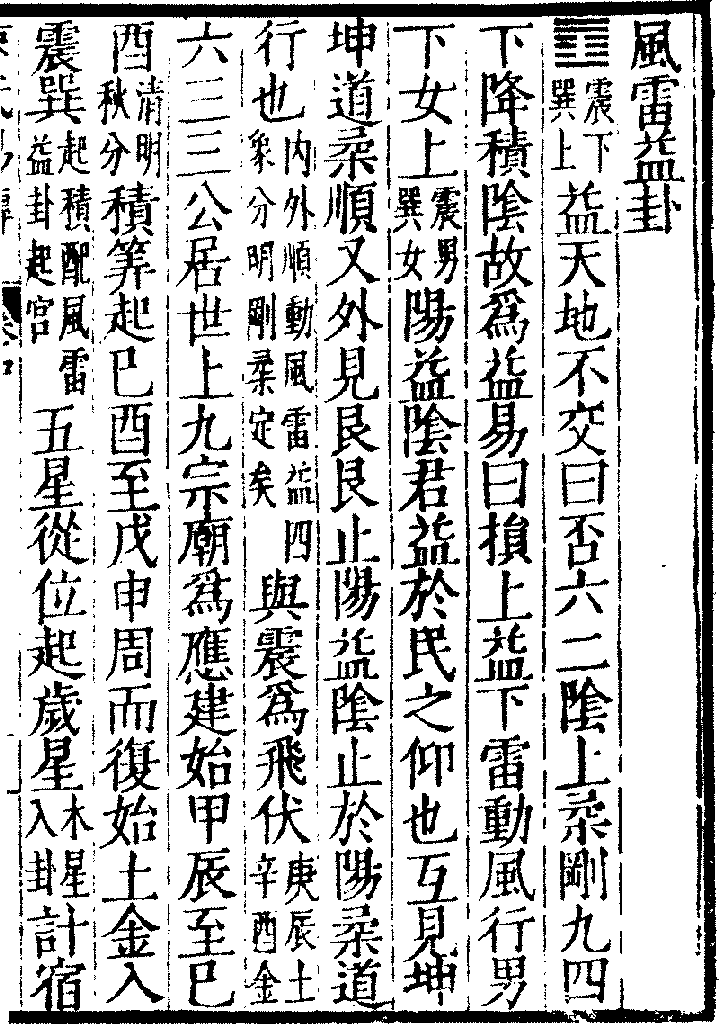 風雷益卦
䷩震下巽上益天地不交曰否六二陰上柔剛九四
下降積陰故爲益易曰損上益下雷動風行男
下女上震男巽女陽益陰君益於民之仰也互見坤
坤道柔順又外見艮艮止陽益陰止於陽柔道
行也内外順動風雷益四象分明剛柔定矣與震爲飛伏庚辰土辛酉金
六三三公居世上九宗廟爲應建始甲辰至巳
酉清明秋分積筭起巳酉至戊申周而復始土金入
震巽起積配風雷益卦起宮五星從位起歲星木星入卦計宿